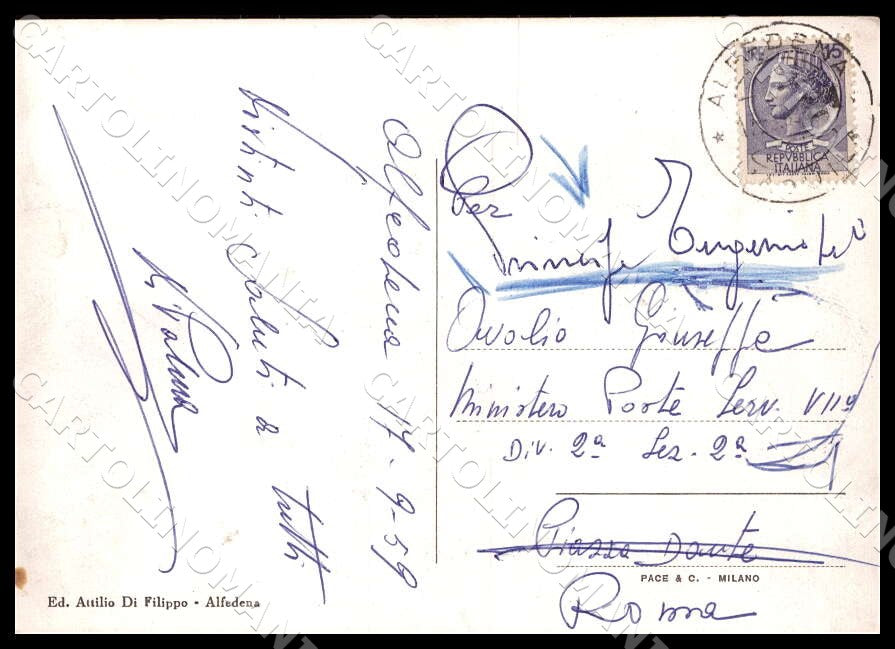 Alfedena 17-9-59
Distinti saluti a tutti
Di Palma
ALFEDENA
POSTE
REPVBBLICA
ITALIANA
Per
Eugenio
Ovolio Giuseppe
Ministero Poste Serv. VII°
Div. 2ª Sez. 2ª
Piazza Dante
PACE & C. - MILANO
Roma
Ed. Attilio Di Filippo - Alfedena
CARTOLINOMANIA